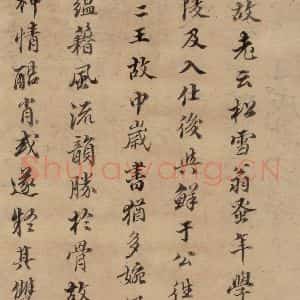 故老云松雪翁蚤年學
陵及入仕後與鮮于公往
二王故中歲書猶多婉
蘊藉風流韻勝於骨故
神情酷肖或遂輕其
Shufawang.CN